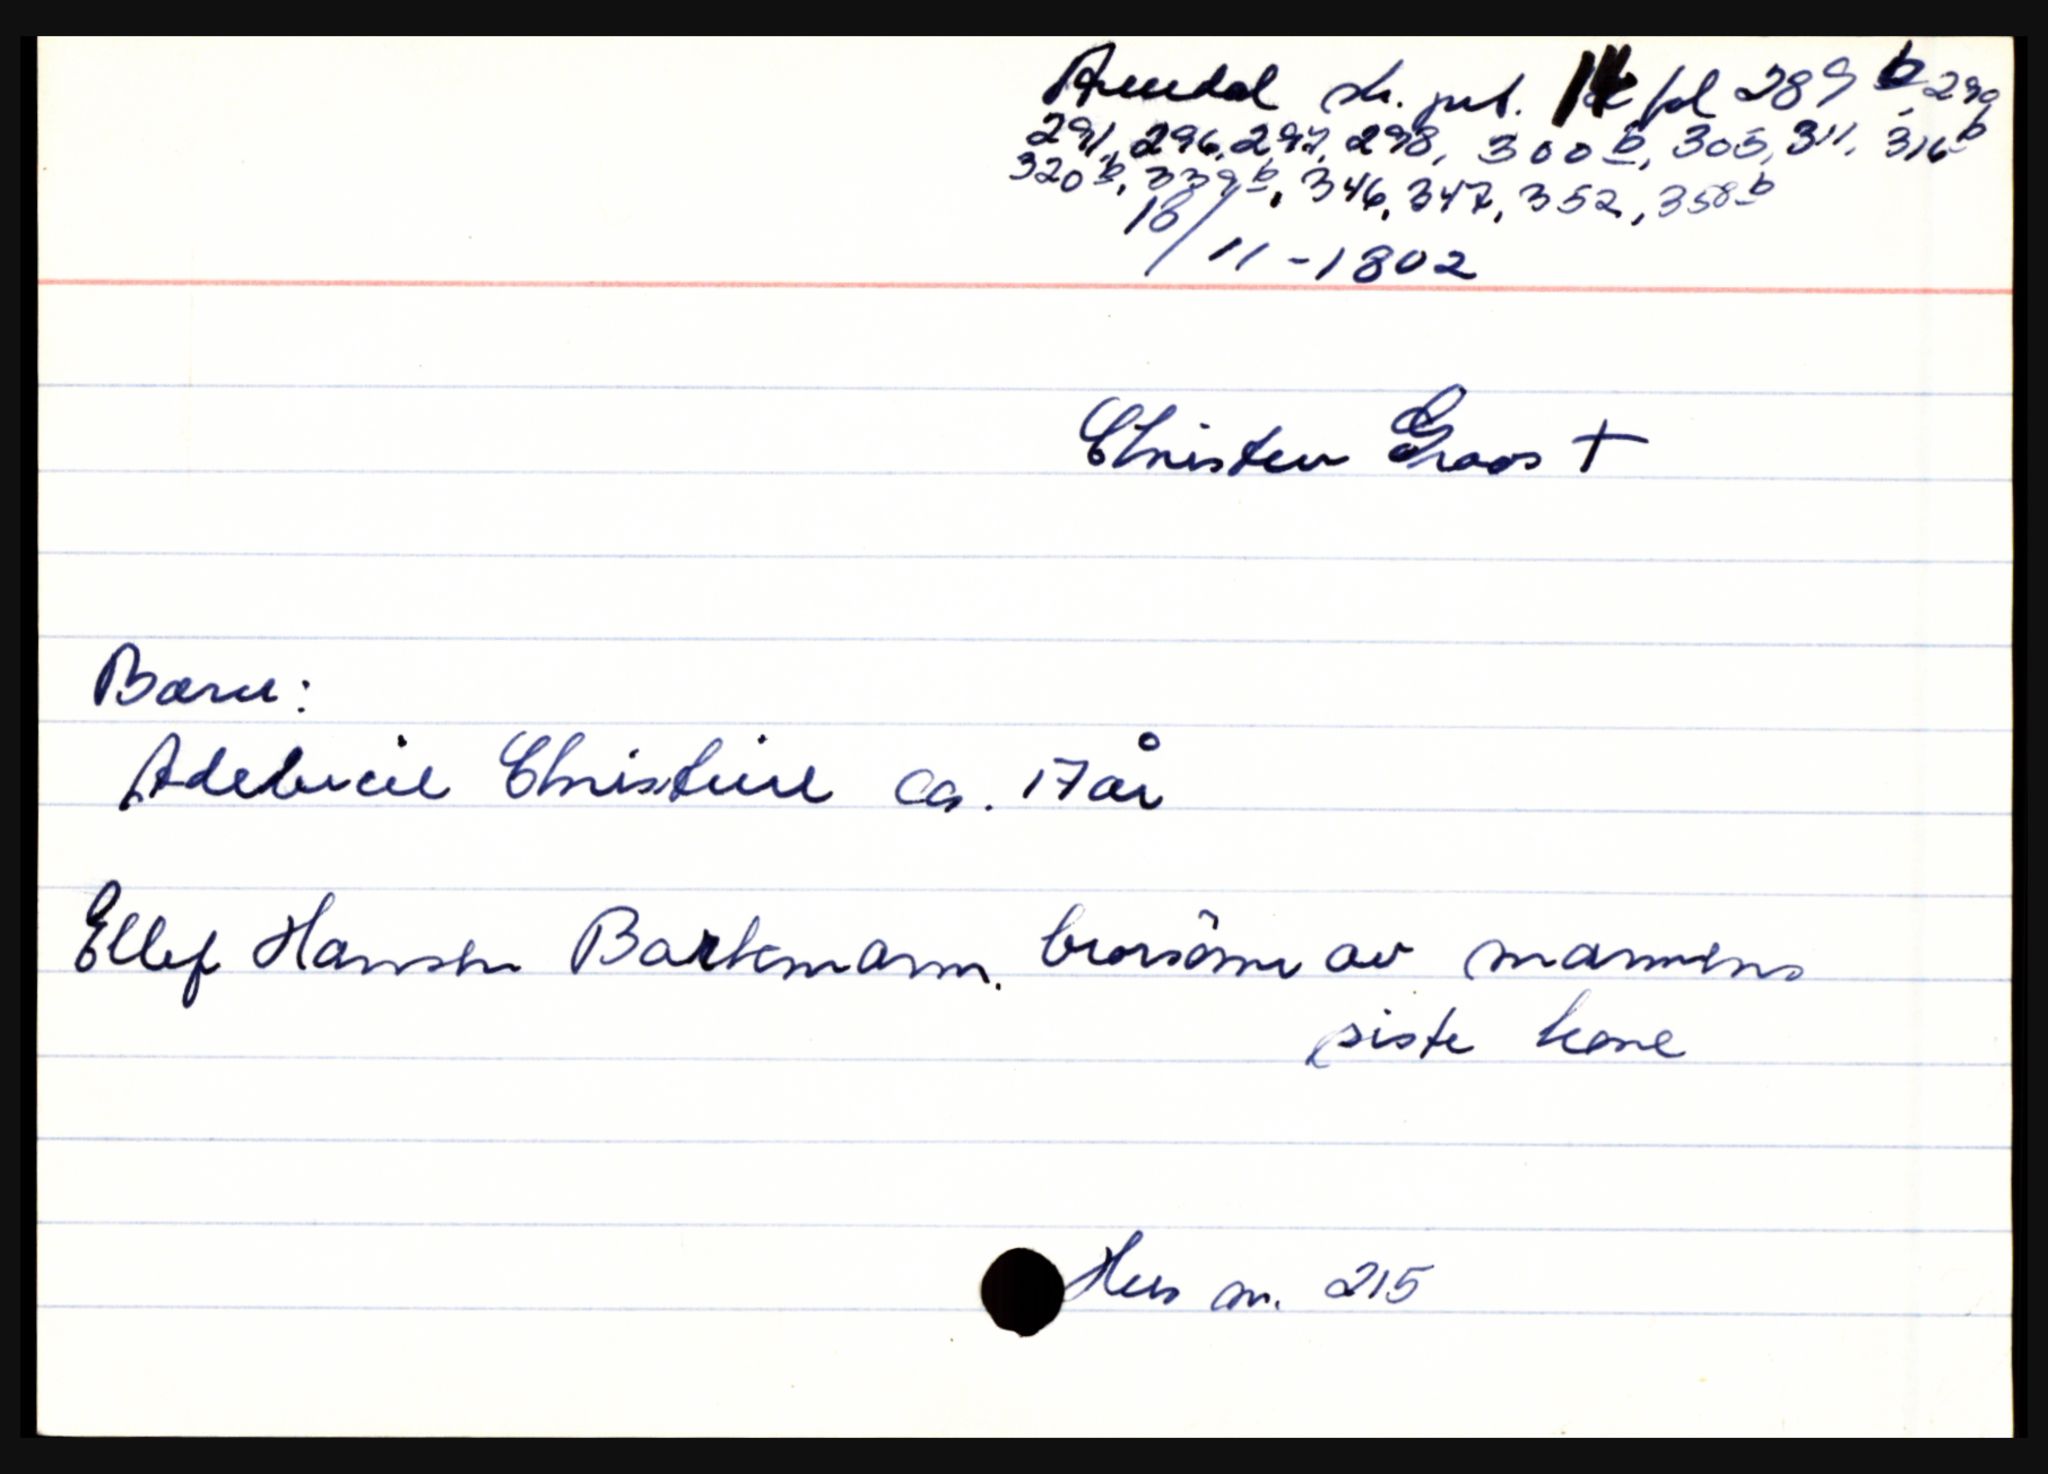 Arendal sk. prot. 14 fol 289 b, 290
291, 296, 297, 298, 300 b, 305, 311, 316 b
320 b, 339 b, 346, 347, 352, 358 b
18/11-1802
Christen Groos +
Barn:
Christine ca. 17 år
Ellef Hansen Barkmann. brorsönn av mannens
siste kone
Hus nr. 215